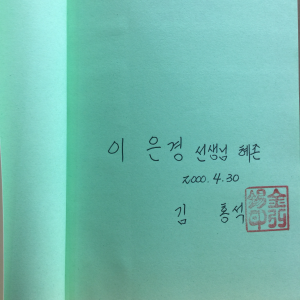 이 은경 선생님 혜존
2000. 4. 30
김 홍석
金弘
錫印